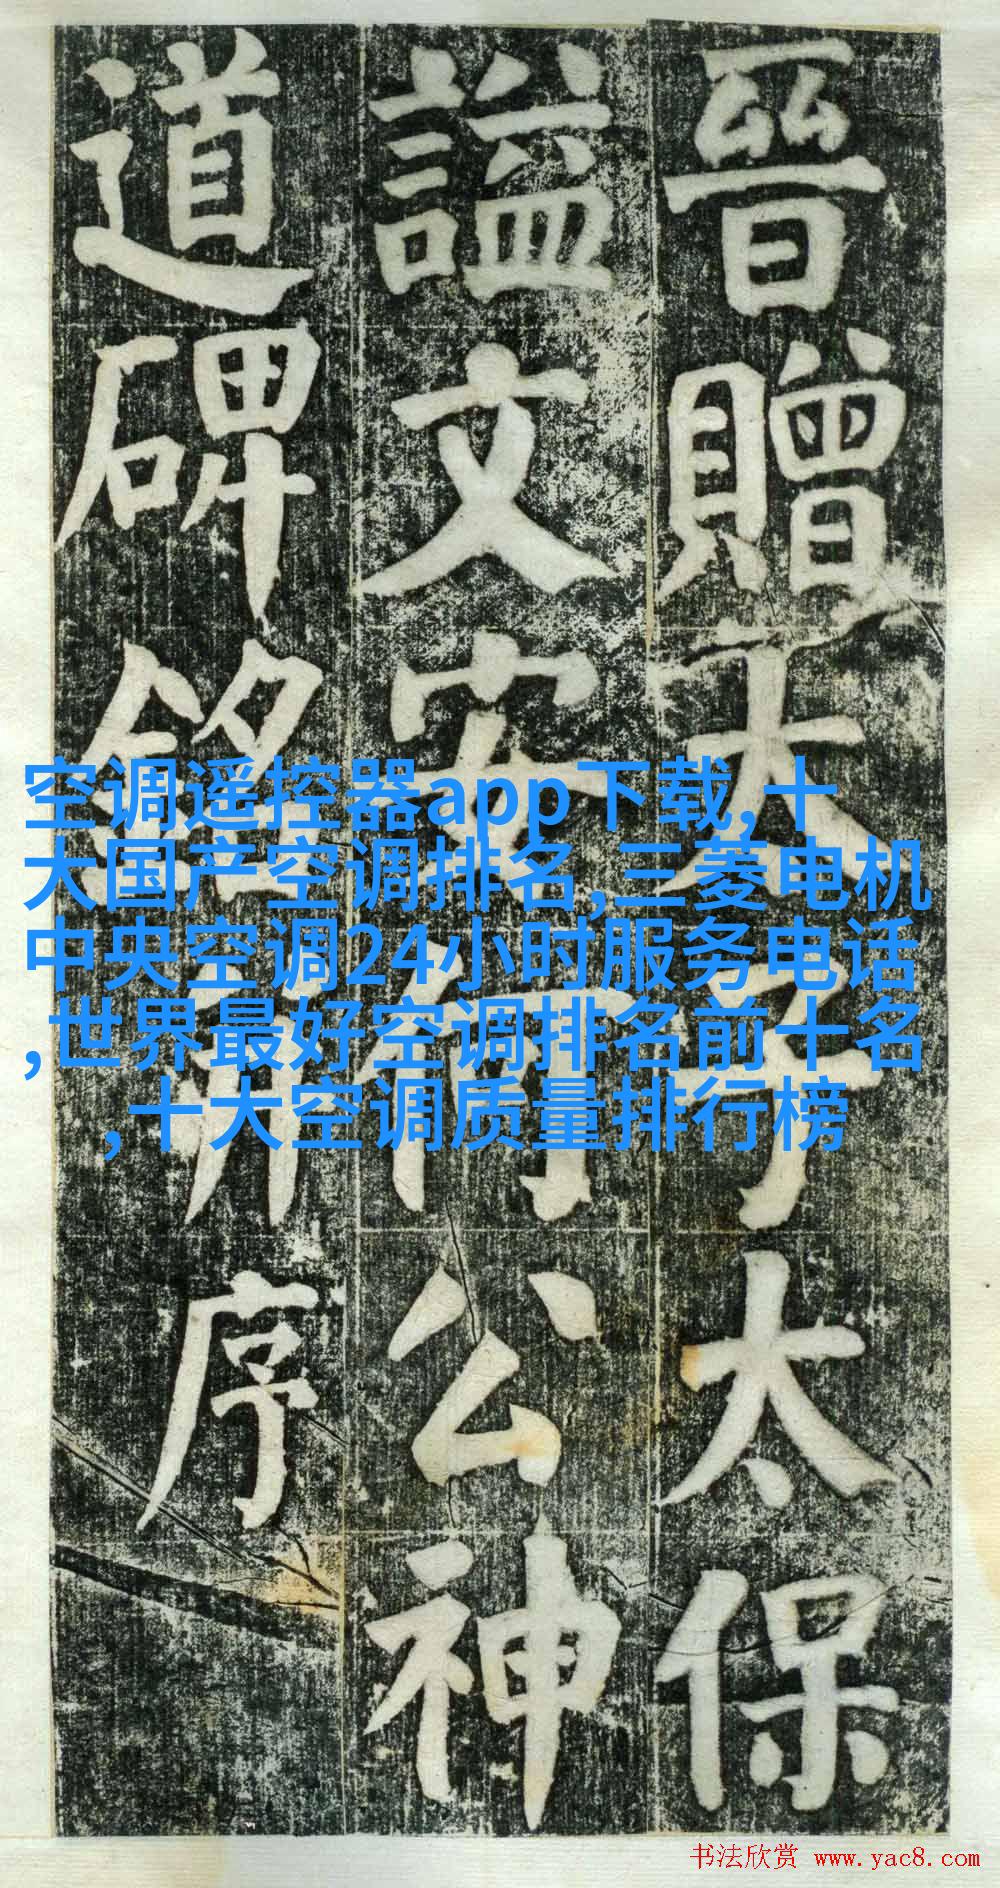 晉贈太子太保
謚文安何公神
道碑銘并序
空调遥控器app下载,十
大国产空调排名,三菱电机
中央空调24小时服务电话
,世界最好空调排名前十名
,十大空调质量排行榜
书法欣赏 www.yac8.com